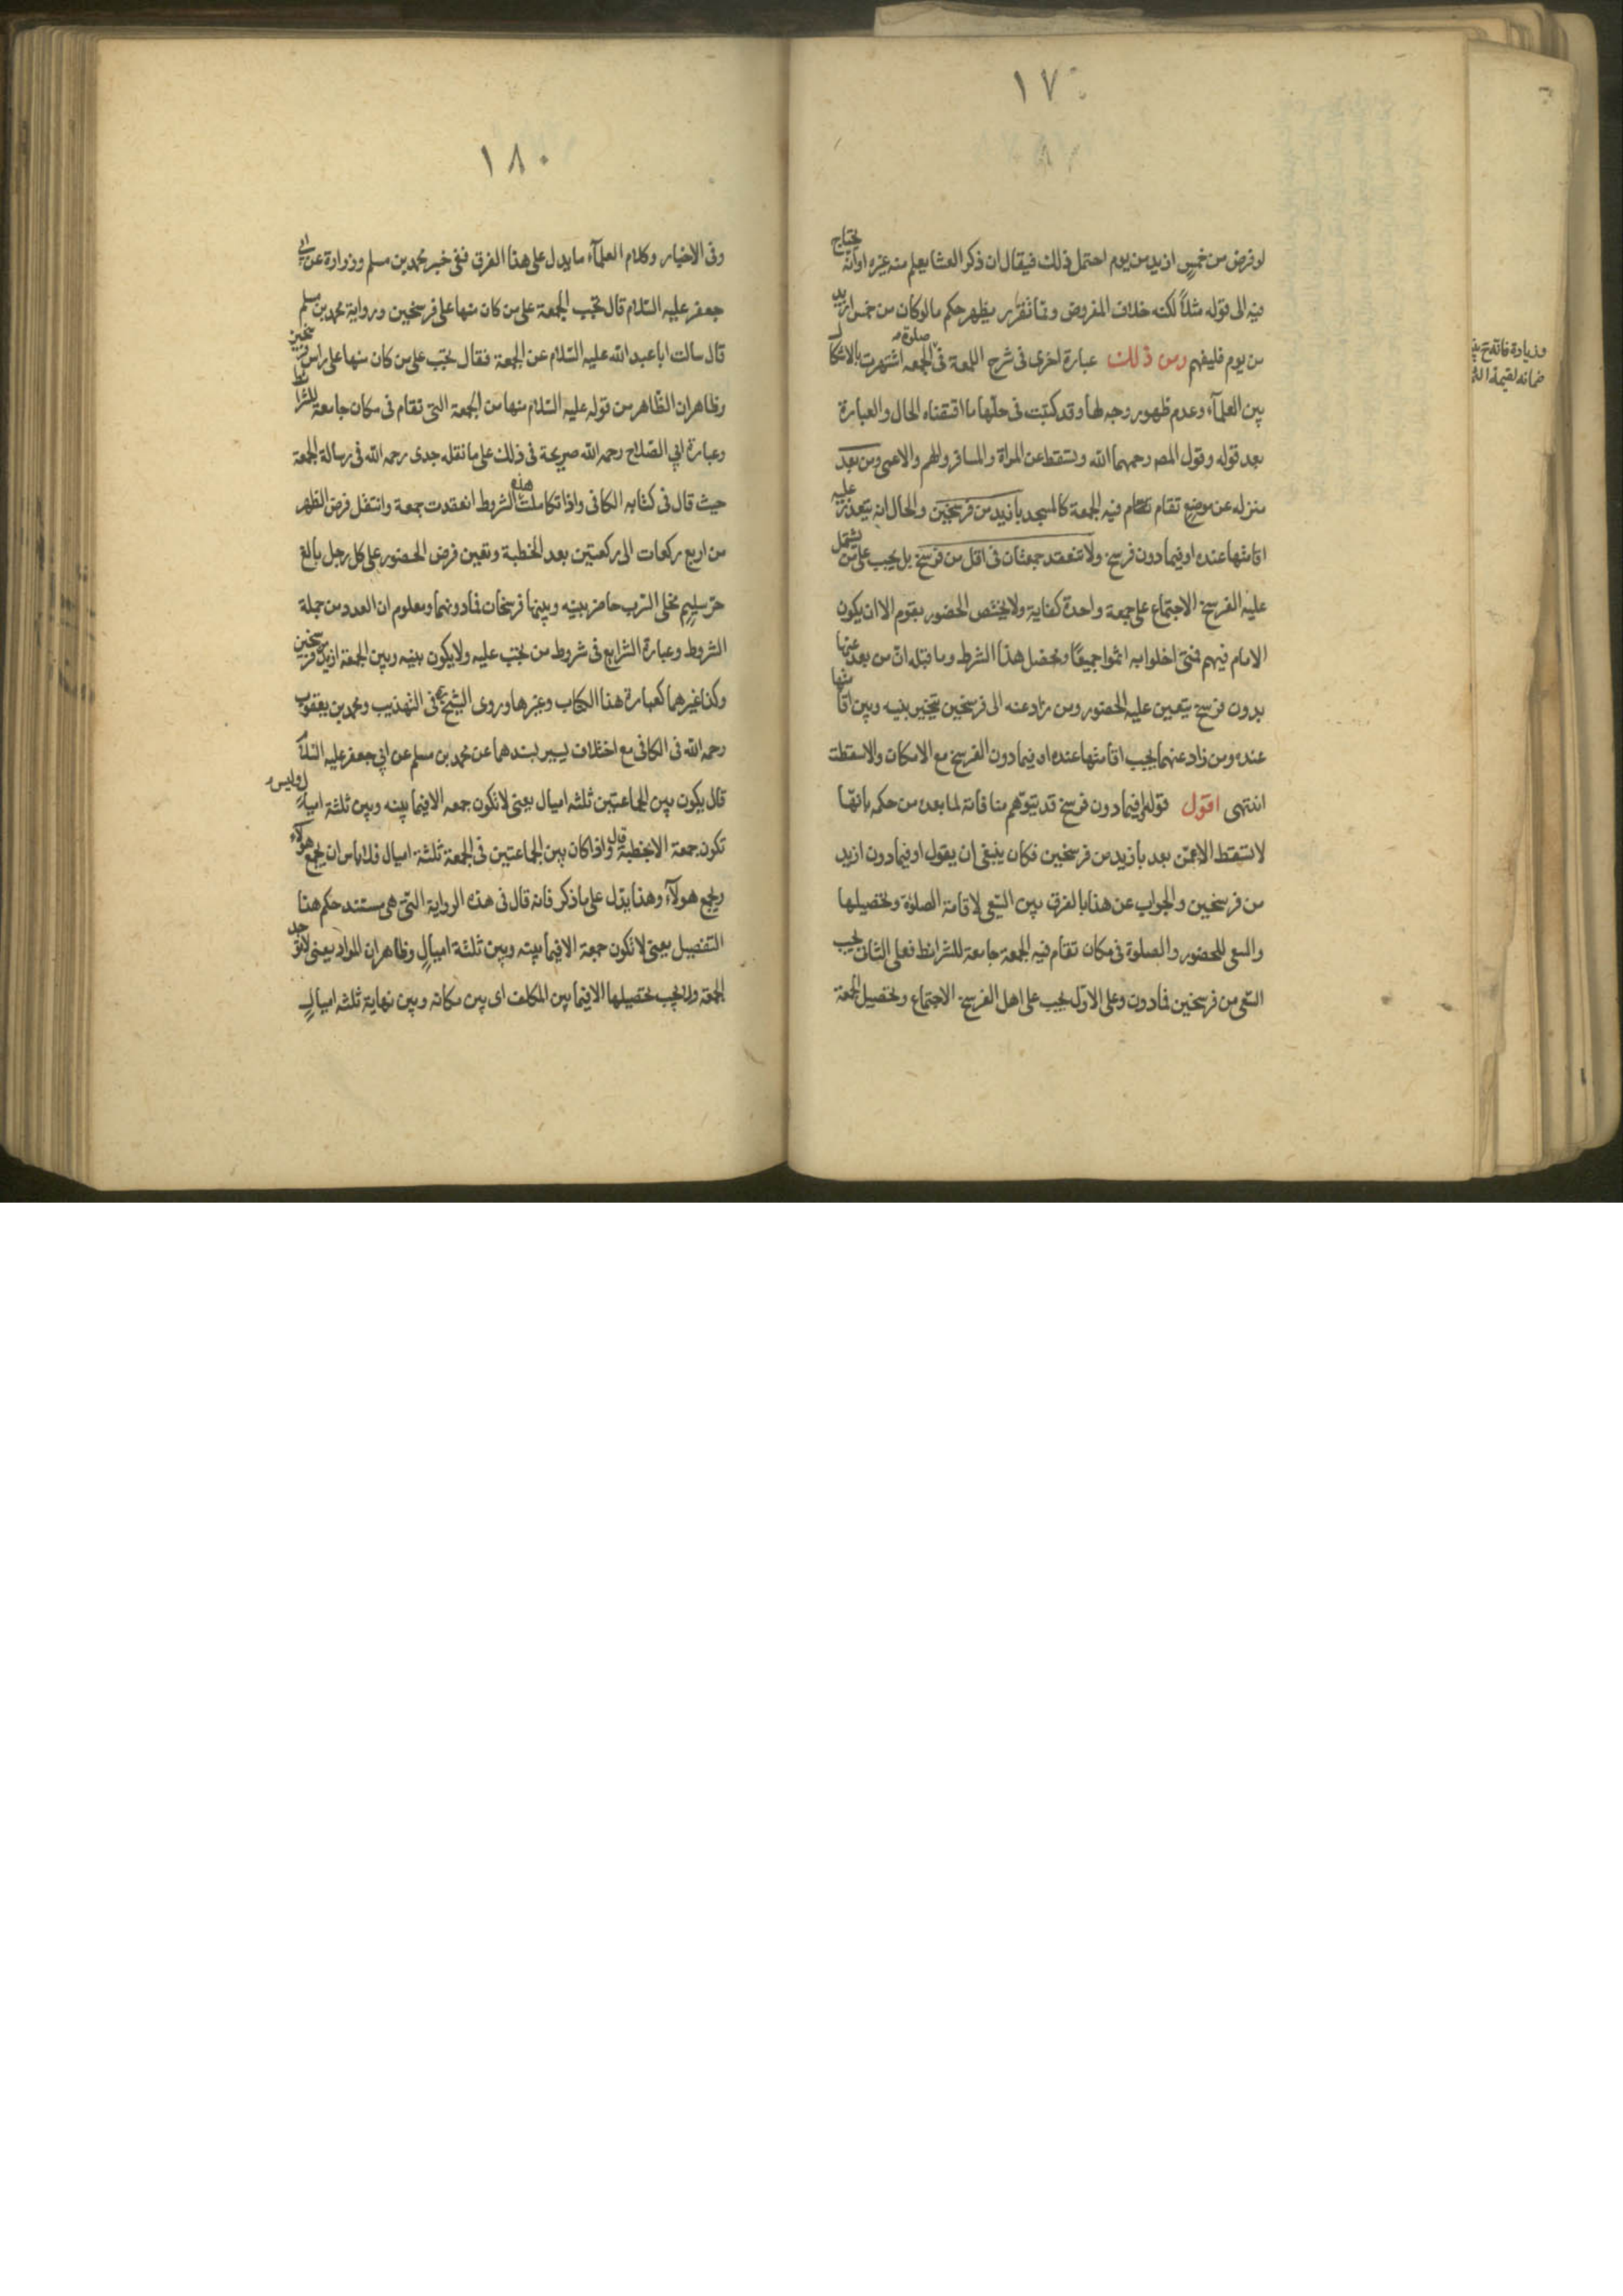 ١٧
لو فرض من خمس ازيد من يوم احتمل ذلك فيقال ان ذكر العشا يعلم منه غيره او انه يحتاج
فيه الى قوله مثلاً لكنه خلاف المفروض وبما تقرر يظهر حكم ما لو كان من خمس ازيد
من يوم فليفهم ومن ذلك عبارة اخرى فى شرح اللمعة فى صلوة الجمعه اشتهرت بالاشكال
بين العلمآء وعدم ظهور وجه لها وقد كتبت فى حلها ما اقتضاه الحال والعبارة
بعد قوله وقول المصـ رحمهما الله وتسقط عن المراة والمسافر والهم والاعمى ومن بعد
منزله عن موضع تقام تقام فيه الجمعة كالمسجد بازيد من فرسخين والحال انه يتعذر عليه
اقامتها عنده او فيما دون فرسخ ولا تنعقد جمعتان فى اقل من فرسخ بل يجب على من يشتمل
عليه الفرسخ الاجتماع على جمعة واحدة كفاية ولا يختص الحضور بقوم الا ان يكون
الامام فيهم فمتى اخلوا به اثموا جميعًا ومحصل هذا الشرط وما قبله ان من بعد عنها
بدون فرسخ يتعين عليه الحضور ومن زاد عنه الى فرسخين يتخير بينه وبين اقامتها
عنده ومن زاد عنهما يجب اقامتها عنده او فيما دون الفرسخ مع الامكان والا سقطت
انتهى اقول قوله او فيما دون فرسخ قد يتوهم منافاته لما بعده من حكمه بانها
لا تسقط الا عمن بعد بازيد من فرسخين فكان ينبغى ان يقول او فيما دون ازيد
من فرسخين والجواب عن هذا بالفرق بين السعى لاقامة الصلوة وتحصيلها
والسعى للحضور والصلوة فى مكان تقام فيه الجمعة جامعة للشرائط فعلى الثانى يجب
السعى من فرسخين فما دون وعلى الاول يجب على اهل الفرسخ الاجتماع وتحصيل الجمعة
وزيادة فاته ح
ضمانه لقيمة
١٨٠
وفى الاخبار وكلام العلمآء ما يدل على هذا الفرق ففى خبر محمد بن مسلم وزرارة عن ابى
جعفر عليه السلام قال تجب الجمعة على من كان منها على فرسخين ورواية محمد بن مسلم
قال سالت ابا عبد الله عليه السلام عن الجمعة فقال تجب على من كان منها على راس فرسخين
وظاهر ان الظاهر من قوله عليه السلام منها من الجمعة التى تقام فى مكان جامعة للشرائط
وعبارة ابي الصلاح رحمه الله صريحة فى ذلك على ما نقله جدى رحمه الله فى رسالة الجمعة
حيث قال فى كتابه الكافى واذا تكاملت هذه الشروط انعقدت جمعة وانتقل فرض الظهر
من اربع ركعات الى ركعتين بعد الخطبة وتعين فرض الحضور على كل رجل بالغ
حر سليم مخلى السرب حاضر بينه وبينها فرسخان فما دونهما ومعلوم ان العدد من جملة
الشروط وعبارة الشرايع فى شروط من تجب عليه ولا يكون بينه وبين الجمعة ازيد من فرسخين
وكذا غيرهما كعبارة هذا الكتاب وغيرها وروى الشيخ ره فى التهذيب ومحمد بن يعقوب
رحمه الله فى الكافى مع اختلاف يسير بسندهما عن محمد بن مسلم عن ابي جعفر عليه السلام
قال يكون بين الجماعتين ثلثه اميال يعنى لا تكون جمعه الا فيما بينه وبين ثلثة اميال وليس
تكون جمعة الا بخطبة قال واذا كان بين الجماعتين فى الجمعة ثلثة اميال فلا باس ان يجمع هولآء
ويجمع هولآء وهذا يدل على ما ذكر فانه قال فى هذه الرواية التى هى مستند حكم هذا
التفصيل يعنى لا تكون جمعة الا فيما بينه وبين ثلثة اميال وظاهر ان المراد يعنى لا توجد
الجمعة ولا يجب تحصيلها الا فيما بين المكلف اى بين مكانه وبين نهاية ثلثه اميال